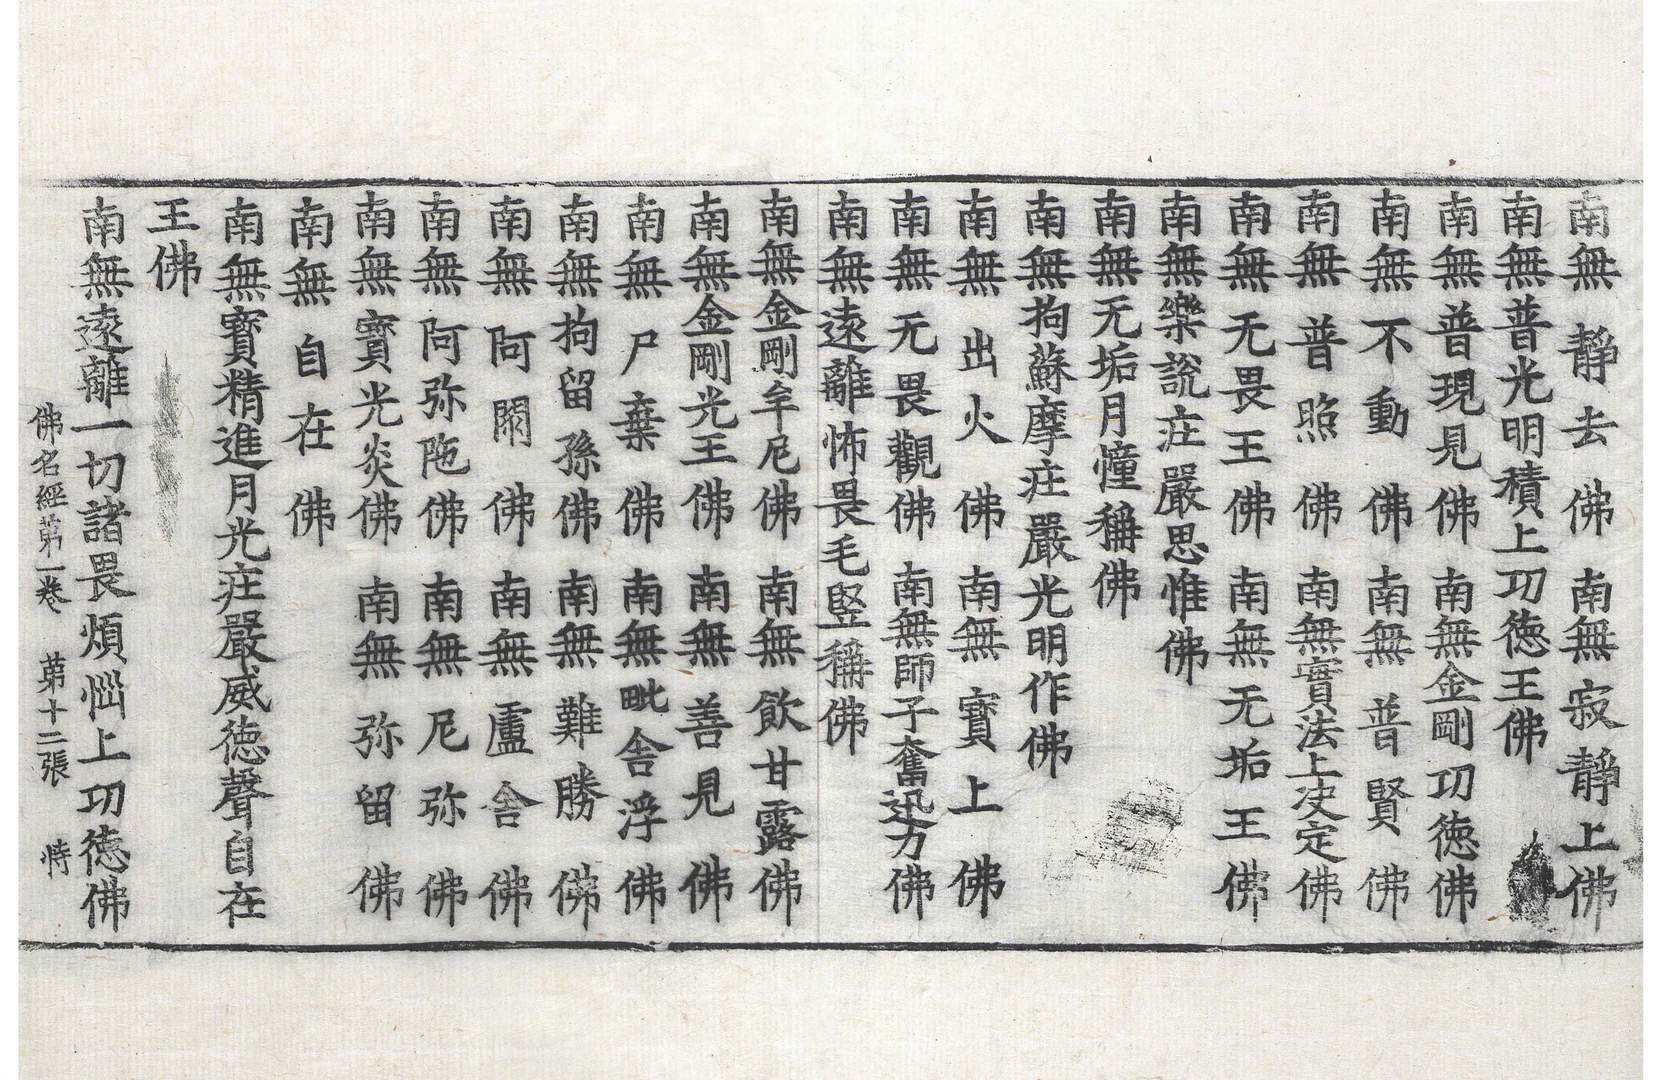 南無靜去佛南無寂靜上佛
南無普光明積上功德王佛
南無普現見佛南無金剛功德佛
南無不動佛南無普賢佛
南無普照佛南無實法上决定佛
南無无畏王佛南無无垢王佛
南無樂説庄嚴思惟佛
南無无垢月幢稱佛
南無拘蘇摩庄嚴光明作佛
南無出火佛南無寶上佛
南無无畏觀佛南無師子奮迅力佛
南無遠離怖畏毛竪稱佛
南無金剛牟尼佛南無飲甘露佛
南無金剛光王佛南無善見佛
南無尸棄佛南無毗舍浮佛
南無拘留孫佛南無難勝佛
南無阿閦佛南無盧舍佛
南無阿弥陁佛南無尼弥佛
南無寶光炎佛南無弥留佛
南無自在佛
南無寶精進月光庄嚴威德聲自在
王佛
南無遠離一切諸畏煩惱上功德佛
佛名經第一卷 第十二張 恃